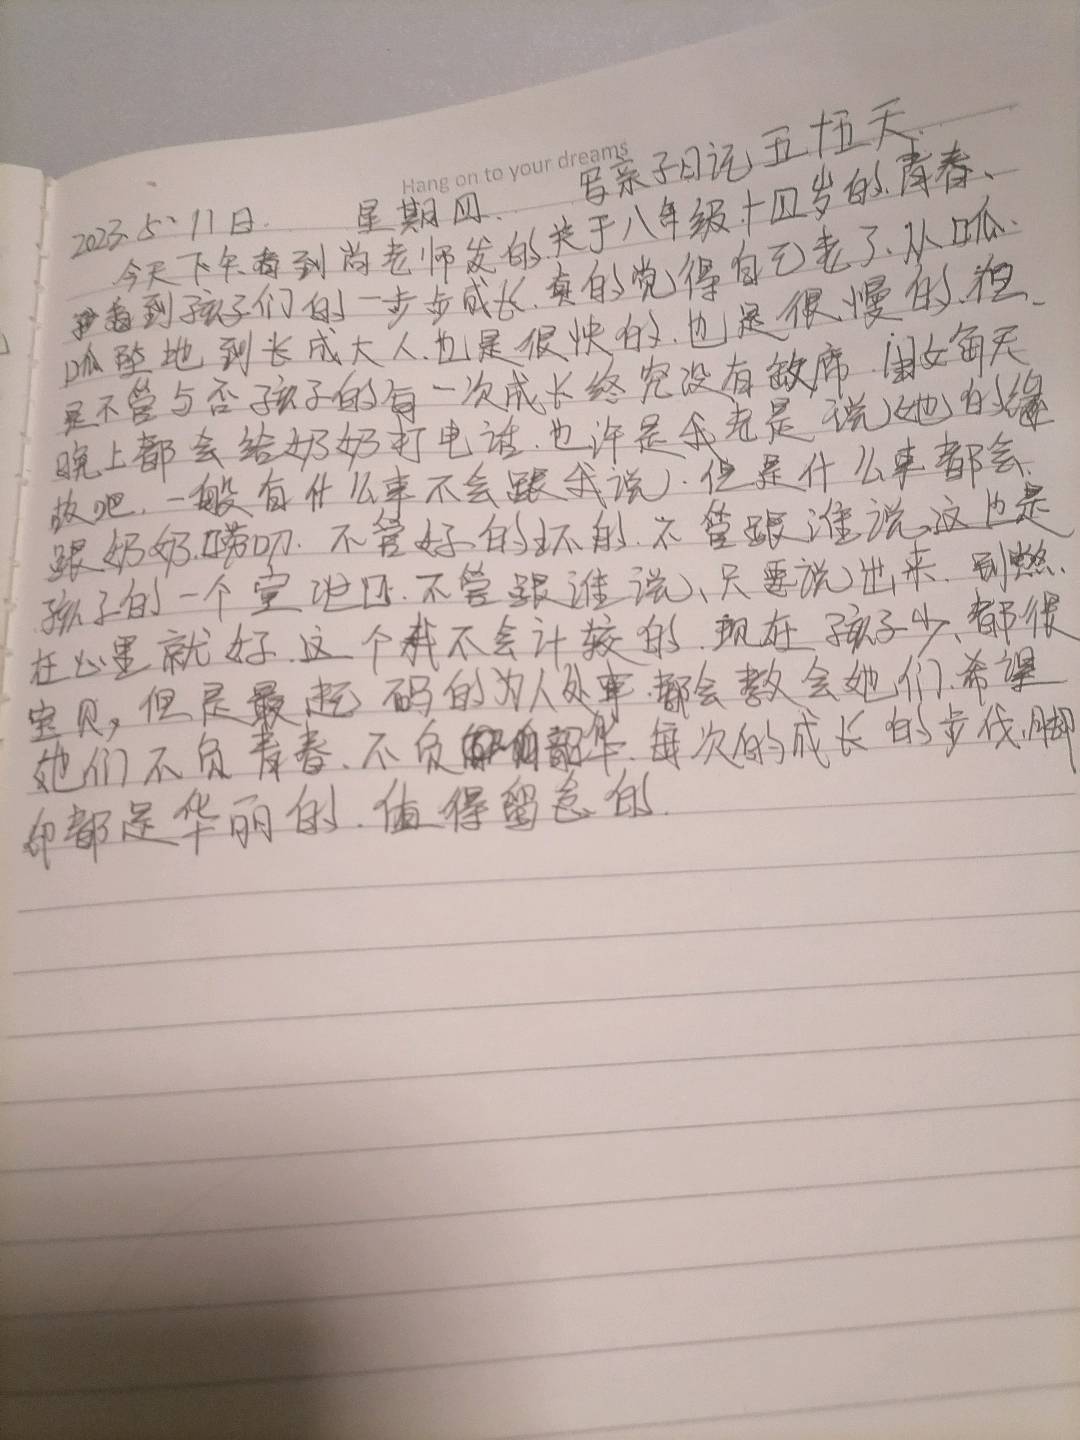 Hang on to your dreams
2023.5.11日. 星期四. 写亲子日记五十五天.
今天下午看到尚老师发的关于八年级十四岁的青春、
看到孩子们的一步步成长.真的觉得自己老了.从呱.
呱坠地到长成大人.也是很快的.也是很慢的.但.
是不管与否孩子的每一次成长终究没有缺席.闺女每天
晚上都会给奶奶打电话.也许是我老是说她的缘
故吧.一般有什么事不会跟我说.但是什么事都会.
跟奶奶唠叨.不管好的坏的.不管跟谁说.这也是
孩子的一个宣泄口.不管跟谁说、只要说出来.别憋.
在心里就好.这个我不会计较的.现在孩子少、都很
宝贝,但是最起码的为人处事都会教会她们.希望
她们不负青春.不负韶华.每次的成长的步伐.脚
印都是华丽的.值得留念的.